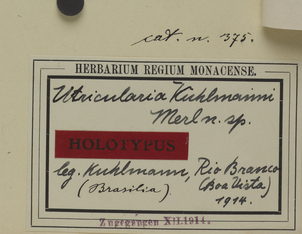 cat. n. 375.
HERBARIUM REGIUM MONACENSE.
Utricularia Kuhlmanni
Merl n. sp.
HOLOTYPUS
leg. Kuhlmann, Rio Branco
(Brasilia) (Boa Vista)
1914.
Zugegangen XII.1914.